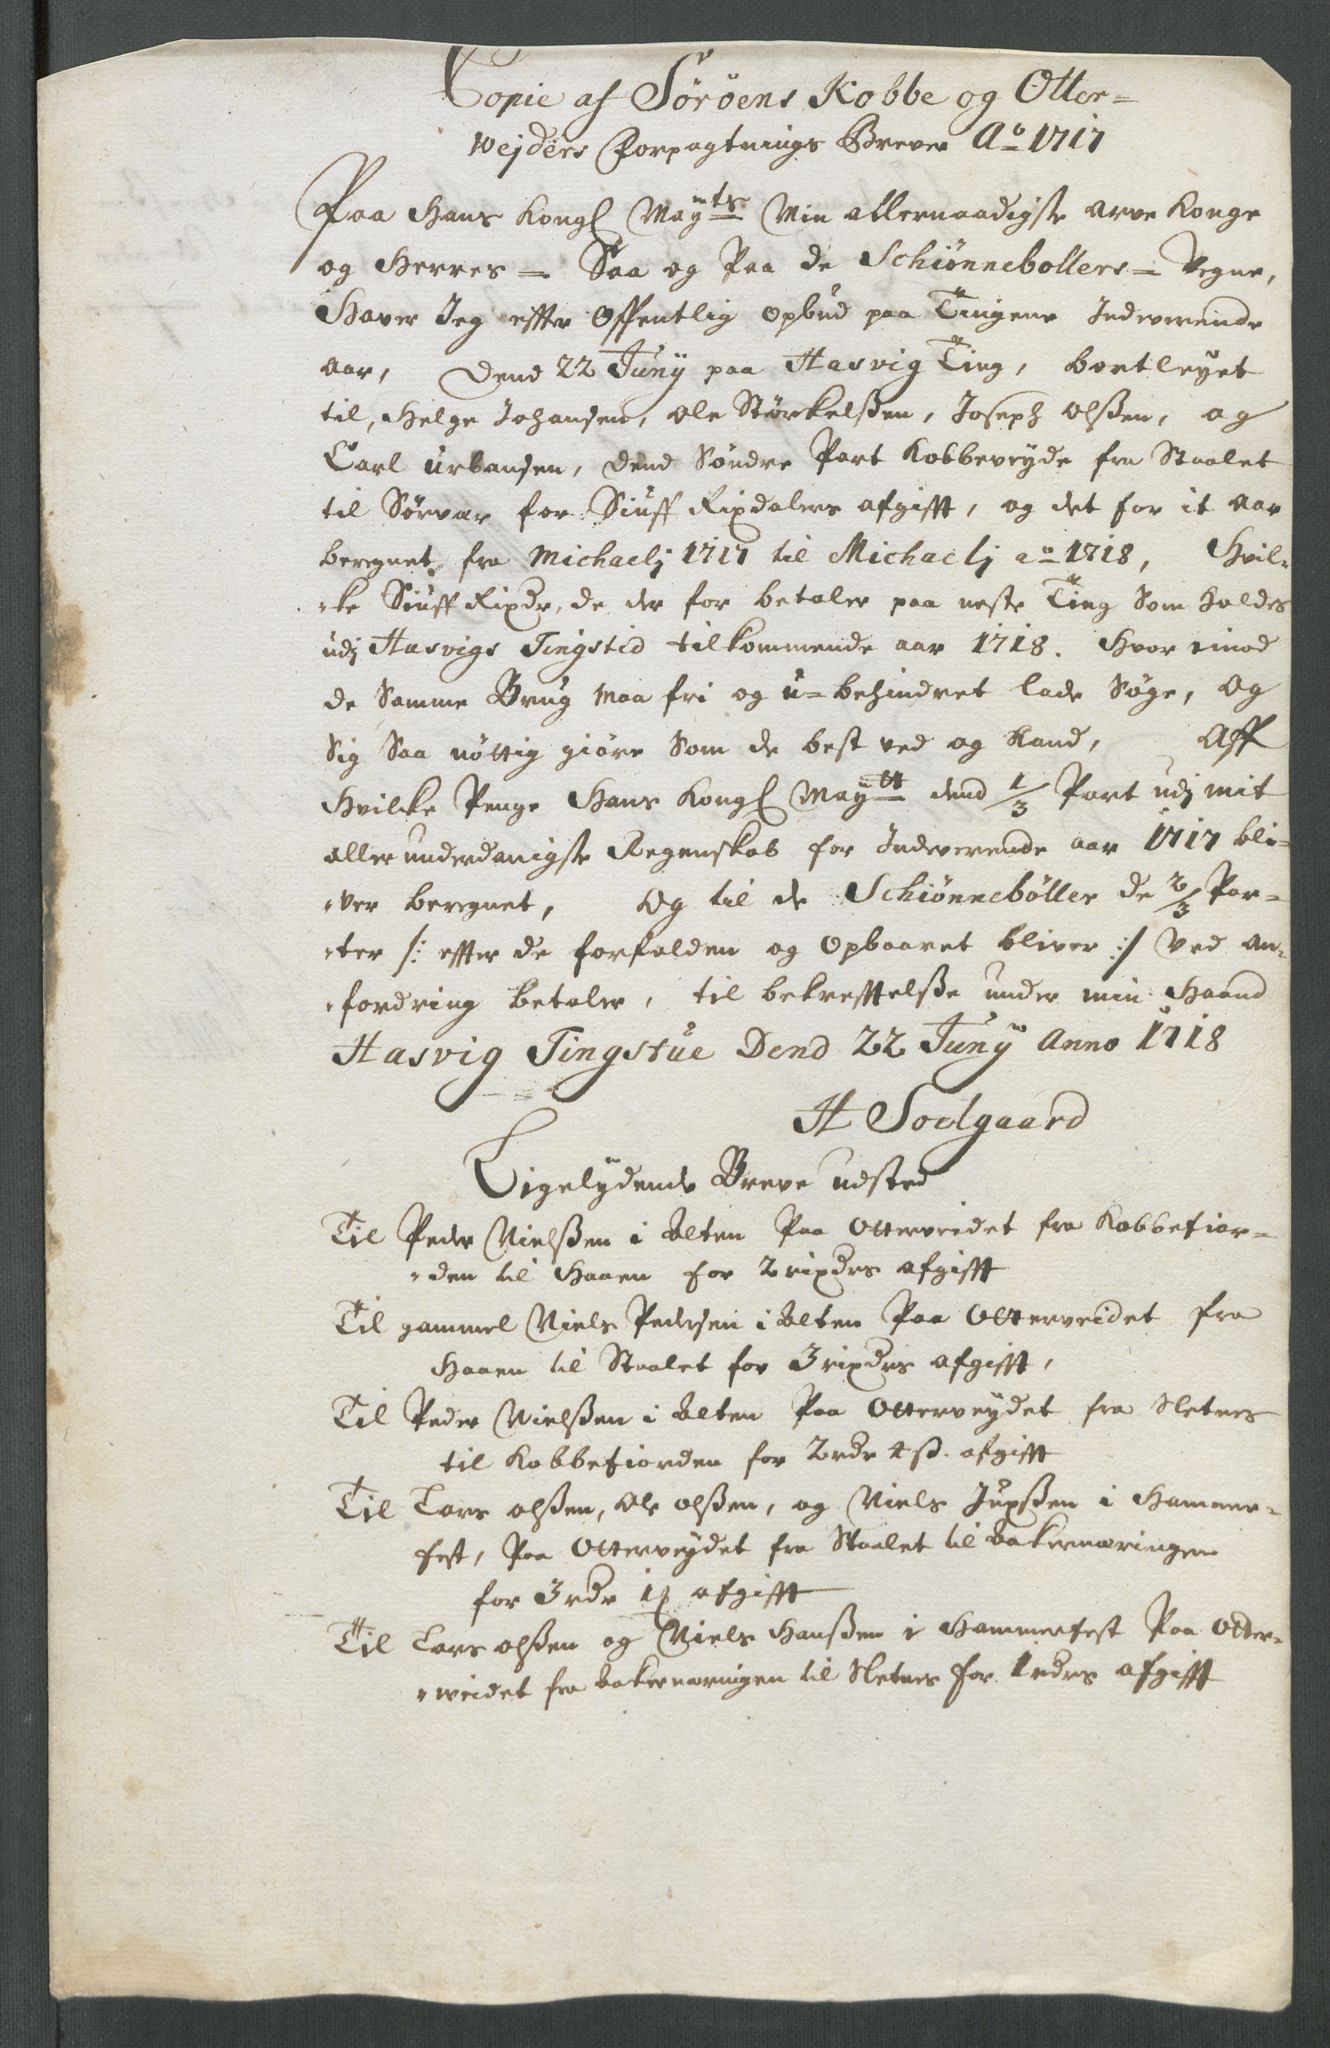 Copie af Söröens Kobbe og Otter=
wejders Forpagtnings Brever Ao 1717
Paa Hans Kongl Mayts Min allernaadigste arve Konge
og Herres = Saa og Paa de Schiönnebollers = Vegne,
Haver Jeg effter Offentlig opbud paa Tingene Indeværende
aar, Dend 22 Juny paa Hasvig Ting, bortleyet
til, Helge Johansen, Ole Störkelßen, Joseph Olßen, og
Carl Urbansen, dend Söndre Part Kobbeveyde fra Staalet
til Sörvær for Siuff Rixdalers afgifft, og det for it aar
beregnet fra Michaelj 1717 til Michaelj ao 1718, Hvil=
=ke Siuff Rixdr, de der for betaler paa neste Ting Som holdes
udj Hasvigs Tingstid tilkommende aar 1718. Hvor imod
de Samme Brug maa fri og u=behindret lade Söge, og
Sig Saa nöttig giöre Som de best ved og kand, Aff
Hvilcke Penge Hans Kongl Maytt dend 1/3 Part udj mit
allerunderdanigste Regenskab for Indeværende aar 1717 bli=
=ver beregnet, Og til de Schiönneböller de 2/3 Par=
=ter /: effter de forfalden og Opbaaret bliver :/ Ved an=
=fordring betaler, til bekrefftelße under min Haand
Hasvig Tingstue Dend 22 Juny Anno 1718
H Sodgaard
Ligelydende Breve udsted
Til Peder Nielßen i Alten Paa Otterveidet fra Kobbefior=
=den til Haaen for 2 rixdrs afgifft
Til gammel Niels Pedersen i Alten Paa Otterveidet fra
Haaen til Staalet for 3 rixdrs afgifft,
Til Peder Nielßen i Alten Paa Otterveydet fra Sletnes
til Kobbefiorden for 2 rdr 4 ß. afgifft
Til Lars Olßen, Ole Olßen, og Niels Jupßen i Hammer=
fest, Paa Otterveydet fra Staalet til Bakernæringen
for 3 rdr 1 ß afgifft
Til Lars Olßen og Niels Hanßen i Hammerfest Paa Otter=
=weidet fra Bakernæringen til Sletnes for 1 rdrs afgifft